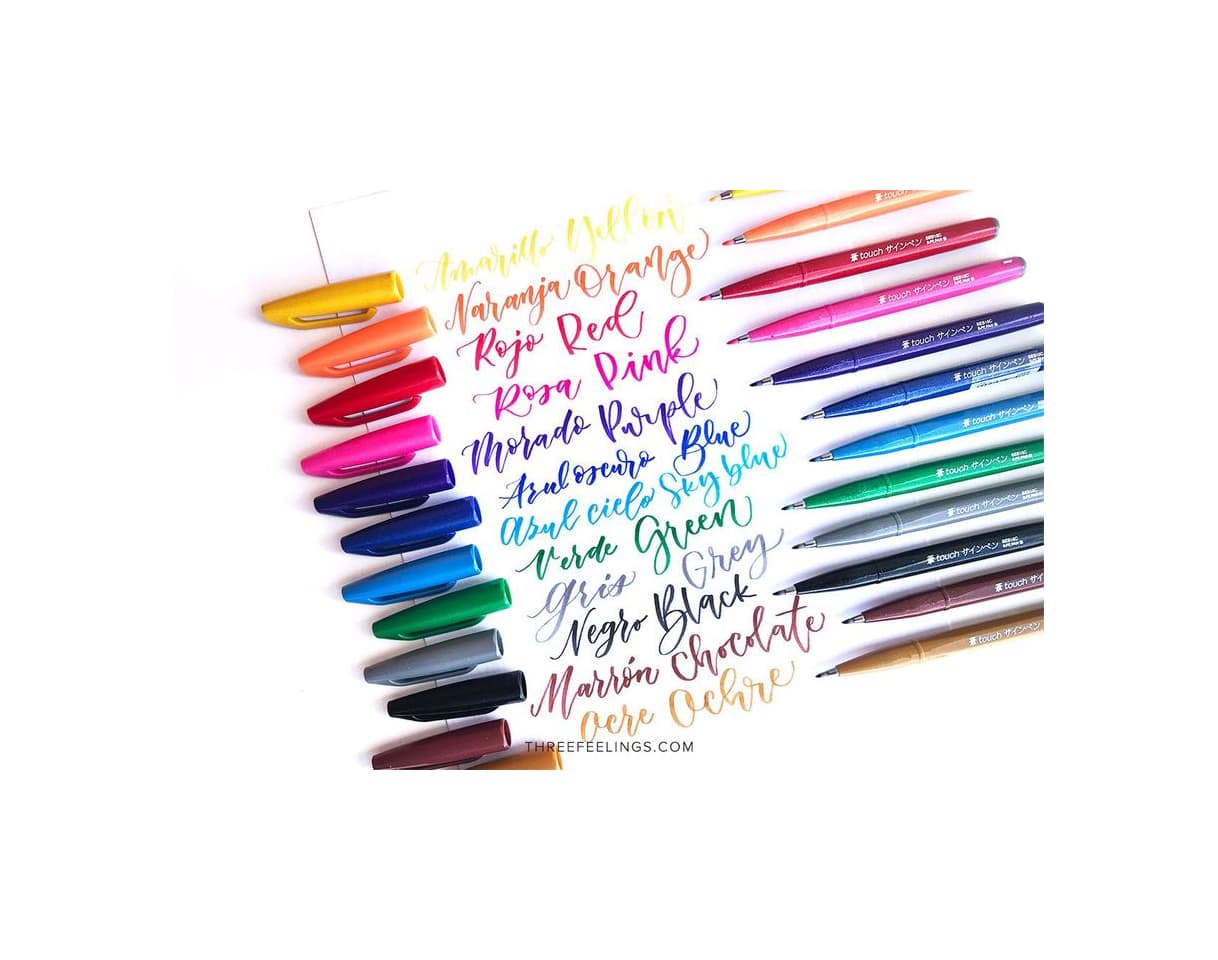 Amarillo Yellow
Naranja Orange
Rojo Red
Rosa Pink
Morado Purple
Azul oscuro Blue
Azul cielo Sky blue
Verde Green
Gris Grey
Negro Black
Marrón Chocolate
Ocre Ochre
THREEFEELINGS.COM
touch サインペン
touch サインペン
touch サインペン
touch サインペン
touch サインペン
touch サインペン
touch サインペン
touch サインペン
touch サインペン
touch サイ
touch サイン